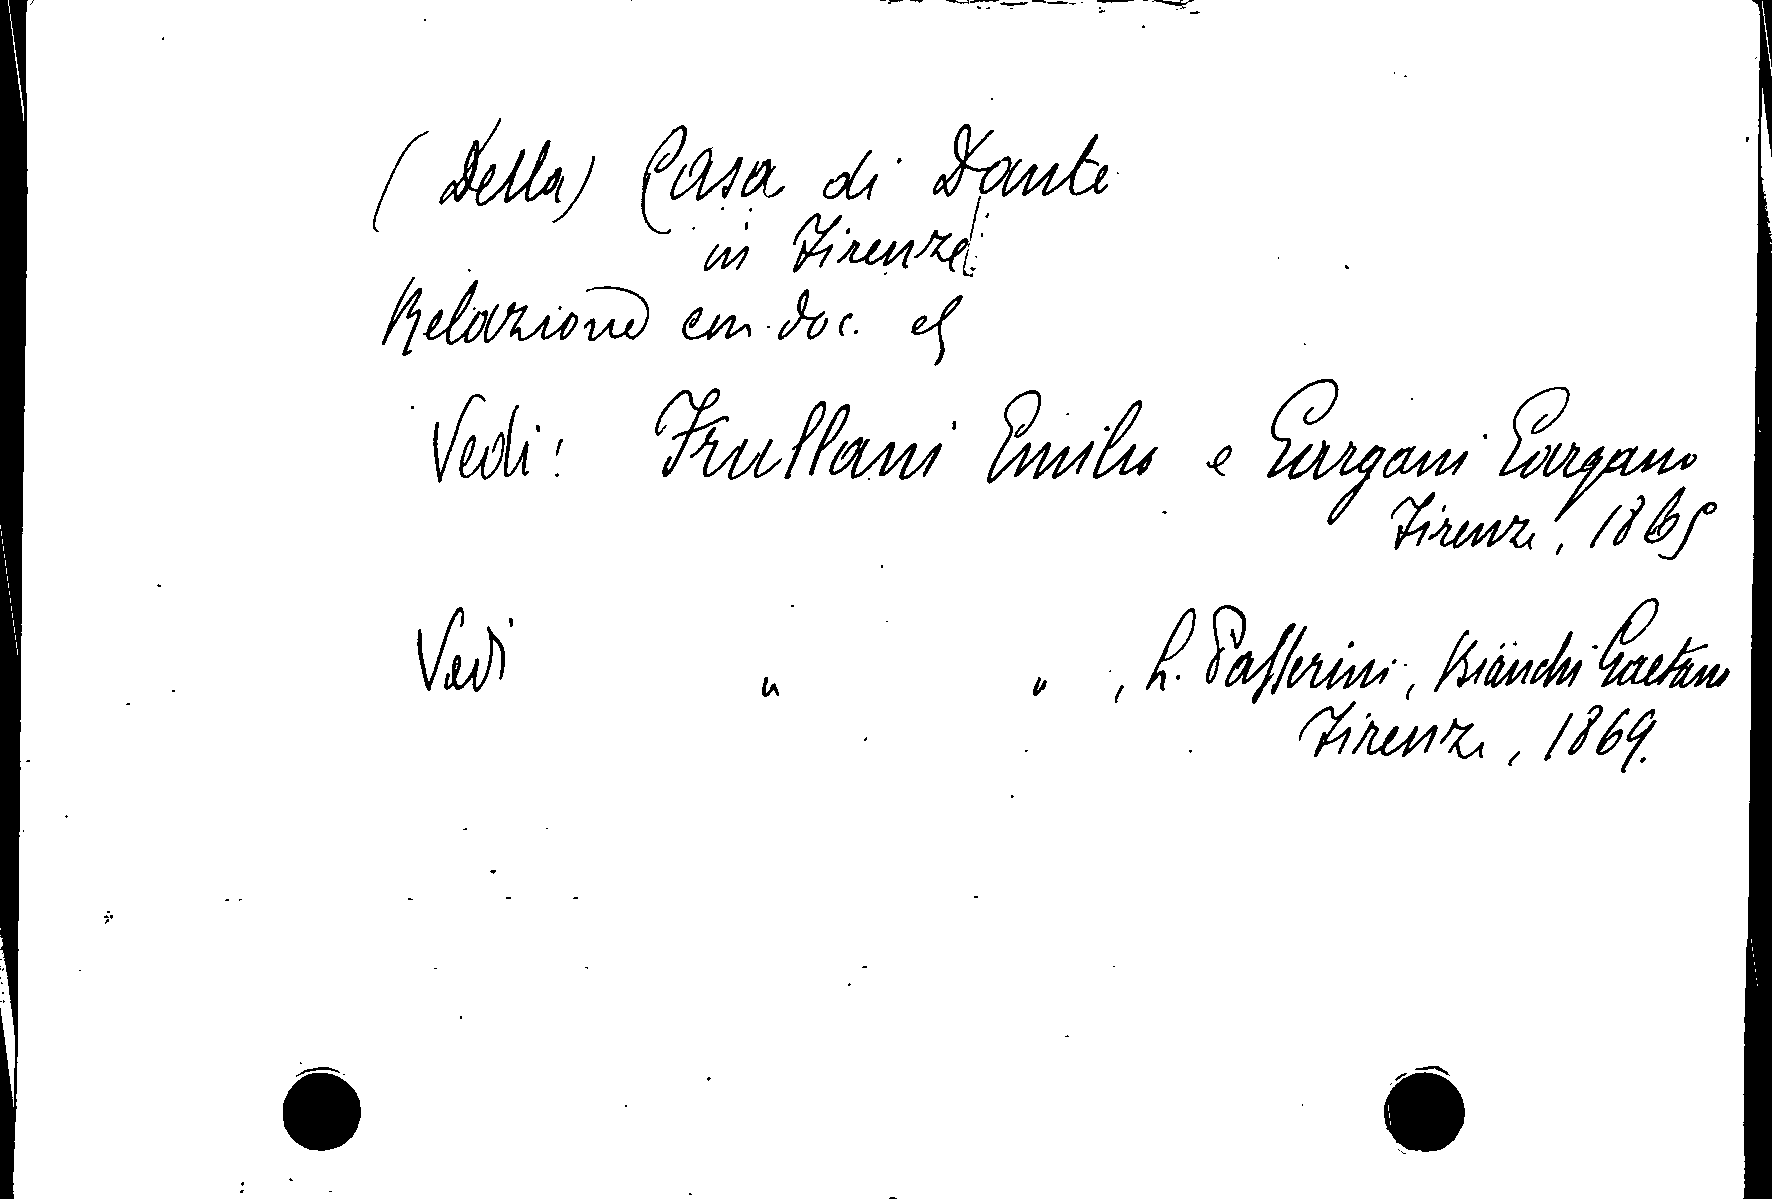 (Della) Casa di Dante
in Firenze.
Relazione con doc. e
Vedi: Frullani Emilio e Gargani Gargano
Firenze, 1865
Vedi " " , L. Passerini, Bianchi Gaetano
Firenze, 1869.